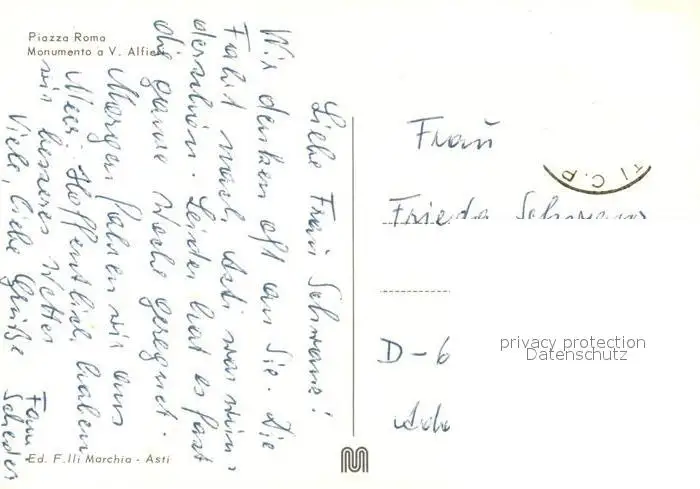 Piazza Roma
Monumento a V. Alfieri
Liebe Frau Schwans!
Wir denken oft an Sie. Die
Fahrt nach Asti war wun-
derschön. Leider hat es fast
die ganze Woche geregnet.
Morgen fahren wir ans
Meer. Hoffentlich haben
wir besseres Wetter
Viele, liebe Grüße
Fam.
Ed. F.lli Marchia - Asti
Frau
Frieda
D-6
TI C.P
privacy protection
Datenschutz